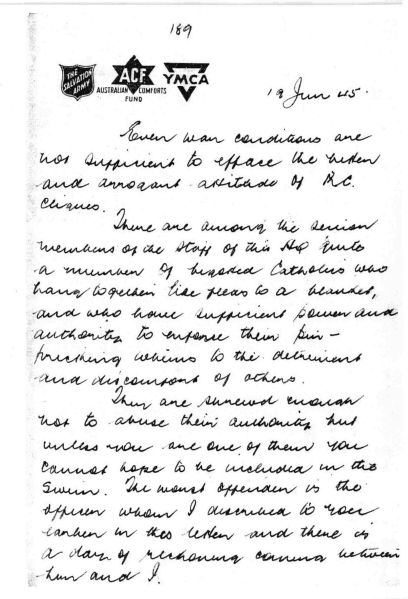 189
THE
SALVATION
ARMY
ACF
AUSTRALIAN COMFORTS
FUND
YMCA
19 Jun 45.
Even war conditions are
not sufficient to efface the
and arrogant attitude of R.C.
cliques.
There are among the senior
members of the Staff of this HQ quite
a number of bigoted Catholics who
hang together like fleas to a blanket,
and who have sufficient power and
authority to enforce their pin-
pricking whims to the detriment
and discomfort of others.
They are shrewd enough
not to abuse their authority but
unless you are one of them you
cannot hope to be included in the
swim. The worst offender is the
officer whom I described to you
earlier in this letter and there is
a day of reckoning coming between
him and I.